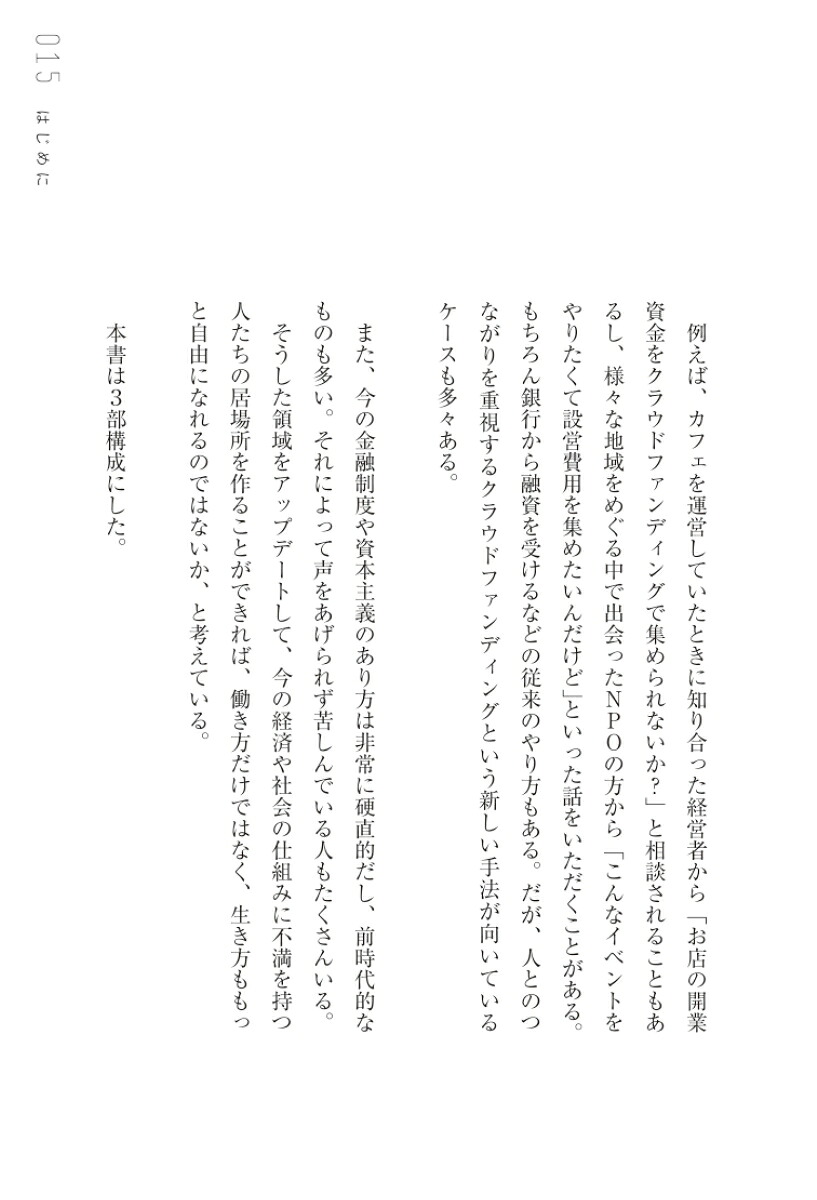 015 はじめに
例えば、カフェを運営していたときに知り合った経営者から「お店の開業
資金をクラウドファンディングで集められないか？」と相談されることもあ
るし、様々な地域をめぐる中で出会ったNPOの方から「こんなイベントを
やりたくて設営費用を集めたいんだけど」といった話をいただくことがある。
もちろん銀行から融資を受けるなどの従来のやり方もある。だが、人とのつ
ながりを重視するクラウドファンディングという新しい手法が向いている
ケースも多々ある。
また、今の金融制度や資本主義のあり方は非常に硬直的だし、前時代的な
ものも多い。それによって声をあげられず苦しんでいる人もたくさんいる。
そうした領域をアップデートして、今の経済や社会の仕組みに不満を持つ
人たちの居場所を作ることができれば、働き方だけではなく、生き方ももっ
と自由になれるのではないか、と考えている。
本書は3部構成にした。